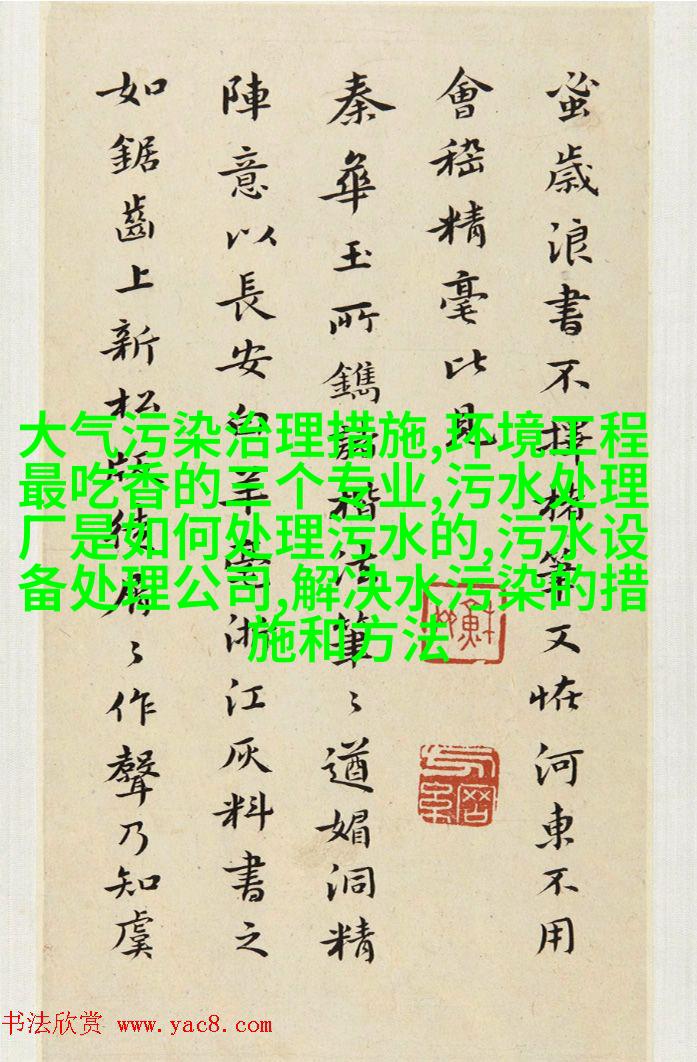 蚤歲浪書不擇楮筆又怪河東不用
會嵇精毫比見
秦華玉所鐫 楷法筆〻遒媚洞精
陣意以長安白羊 浙江灰料書之
如鋸齒上新松版 〻作聲乃知虞
大气污染治理措施,环境工程
最吃香的三个专业,污水处理
厂是如何处理污水的,污水设
备处理公司,解决水污染的措
施和方法
书法欣赏 www.yac8.com